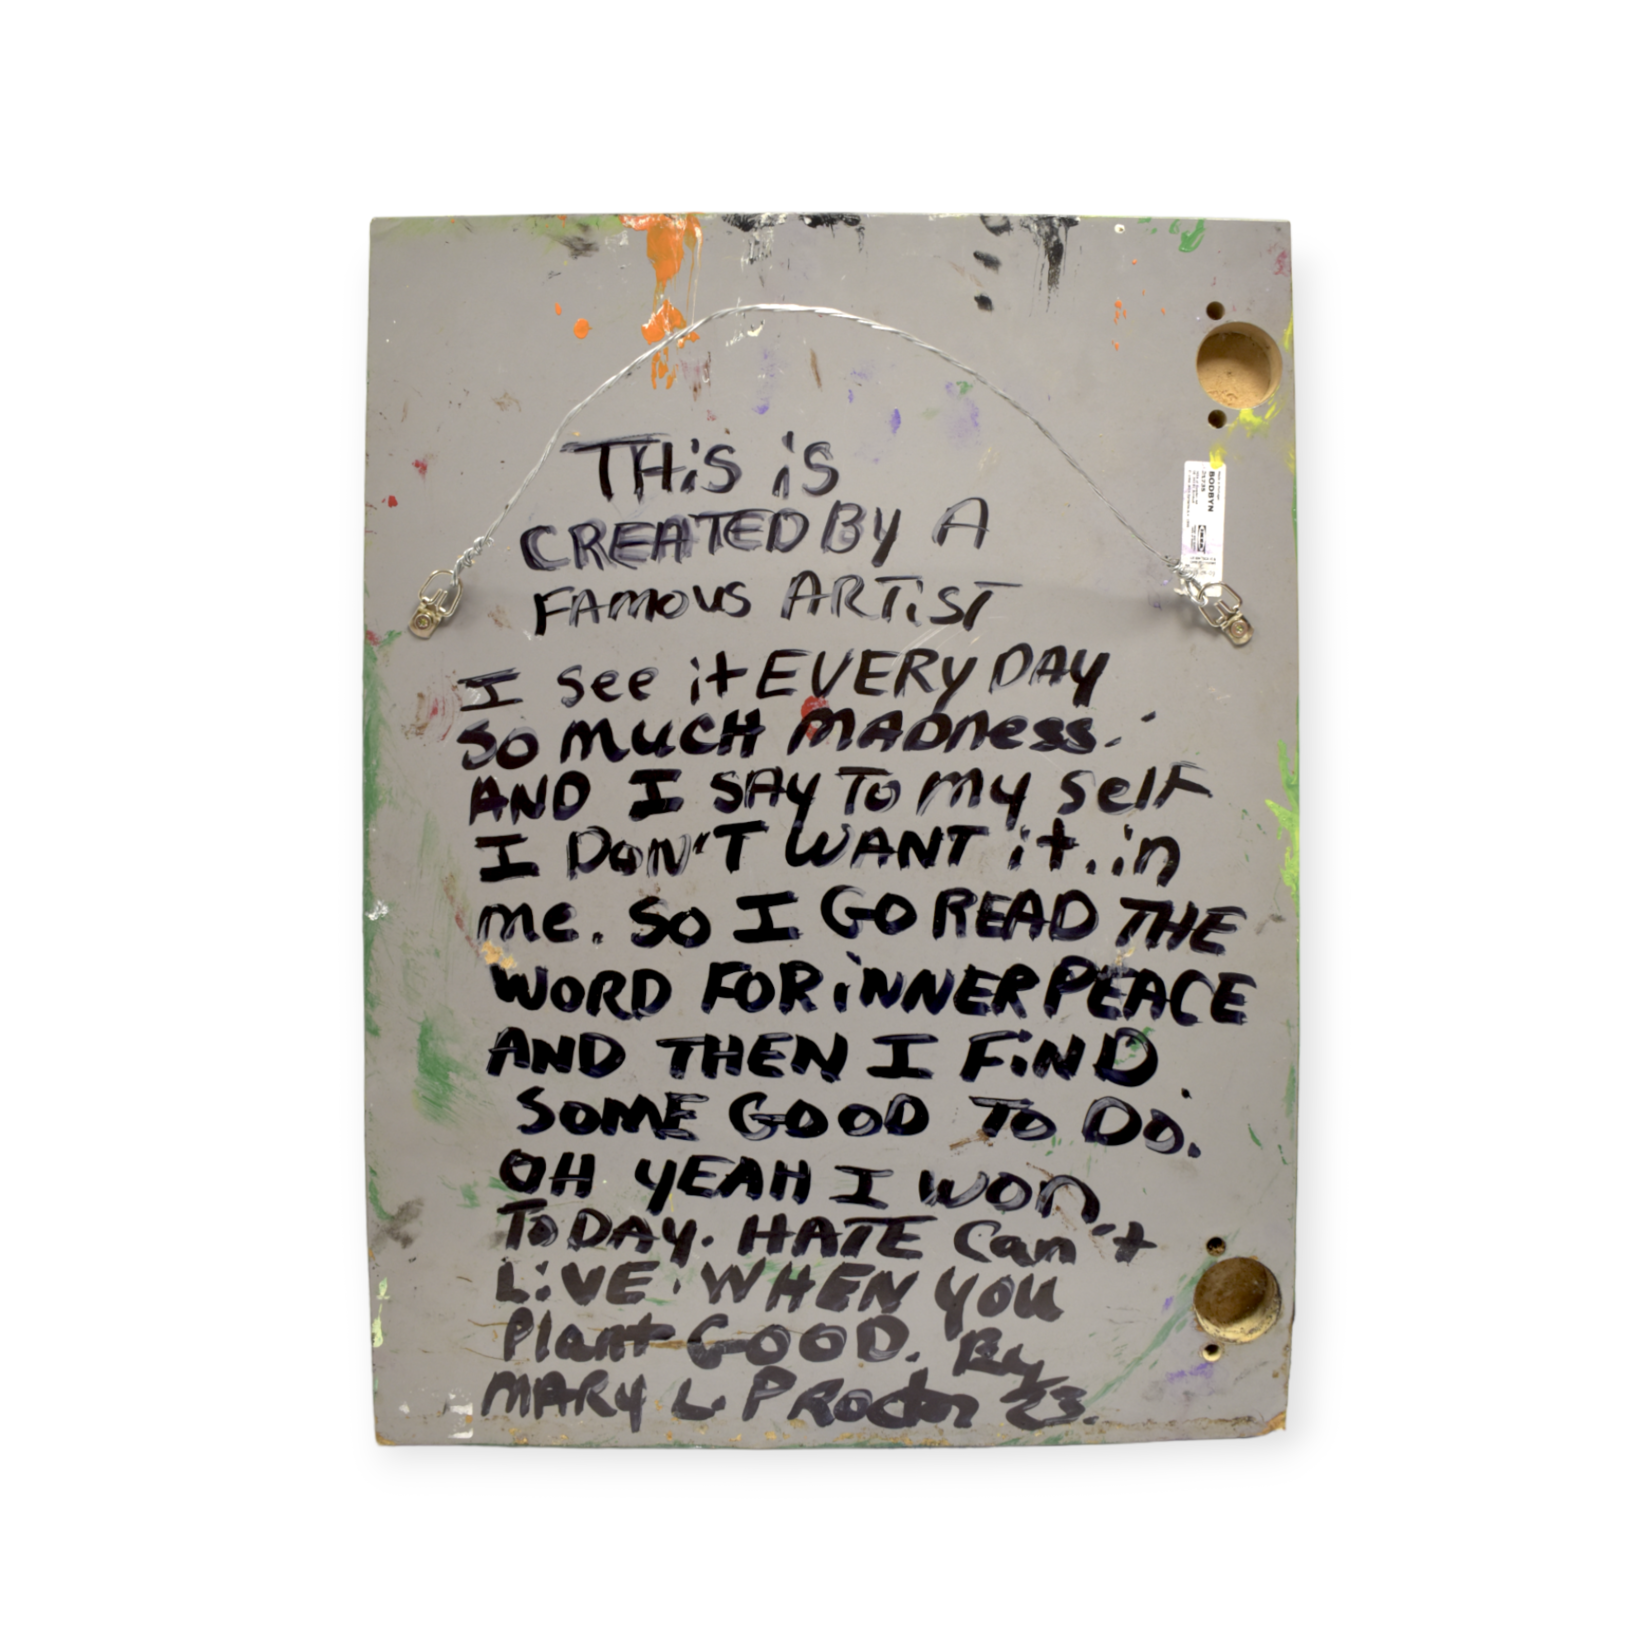 THiS iS
CREATED BY A
FAMOUS ARTiST
I see it EVERY DAY
SO MUCH MADNess.
AND I SAY To my self
I DON'T WANT it. in
me. SO I GO READ THE
WORD FOR iNNER PEACE
AND THEN I FiND
SOME GOOD TO DO.
OH YEAH I WON
TODAY. HATE Can't
LiVE. WHEN YOU
Plant GOOD. By
MARY L. PRoctor 23.
BODBYN
IKEA